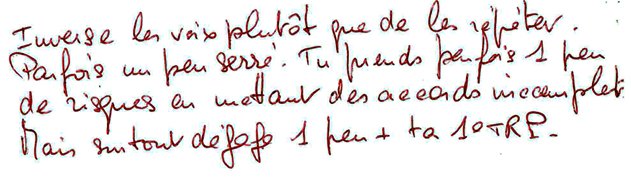 Inverse les voix plutôt que de les répéter.
Parfois un peu serré. Tu prends parfois 1 peu
de risques en mettant des accords incomplets
Mais surtout dégage 1 peu + ta 10TRP.